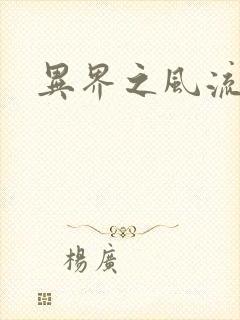 異界之風流
楊廣